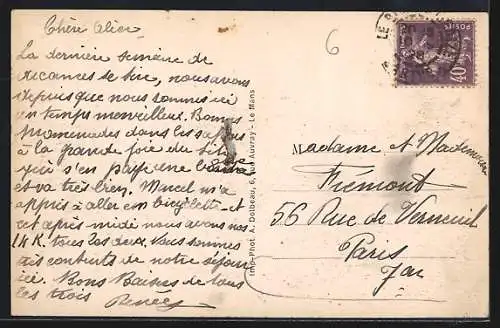 Chère Alice
La dernière semaine de
vacances se tire, nous avons
depuis que nous sommes ici
un temps merveilleux. Bonnes
promenades dans les
à la grande joie du
qui s'en paye une
et va très bien. Marcel m'a
appris à aller en bicyclette et
cet après midi nous avons fait
14 K. tous les deux. Nous sommes
très contents de notre séjour
ici. Bons Baisers de tous
les trois
Renée
Imp.-Phot. A. Dolbeau, 6, rue Auvray - Le Mans
6
POSTES
40c
Madame et Mademoiselle
Frémont
56 Rue de Verneuil
Paris